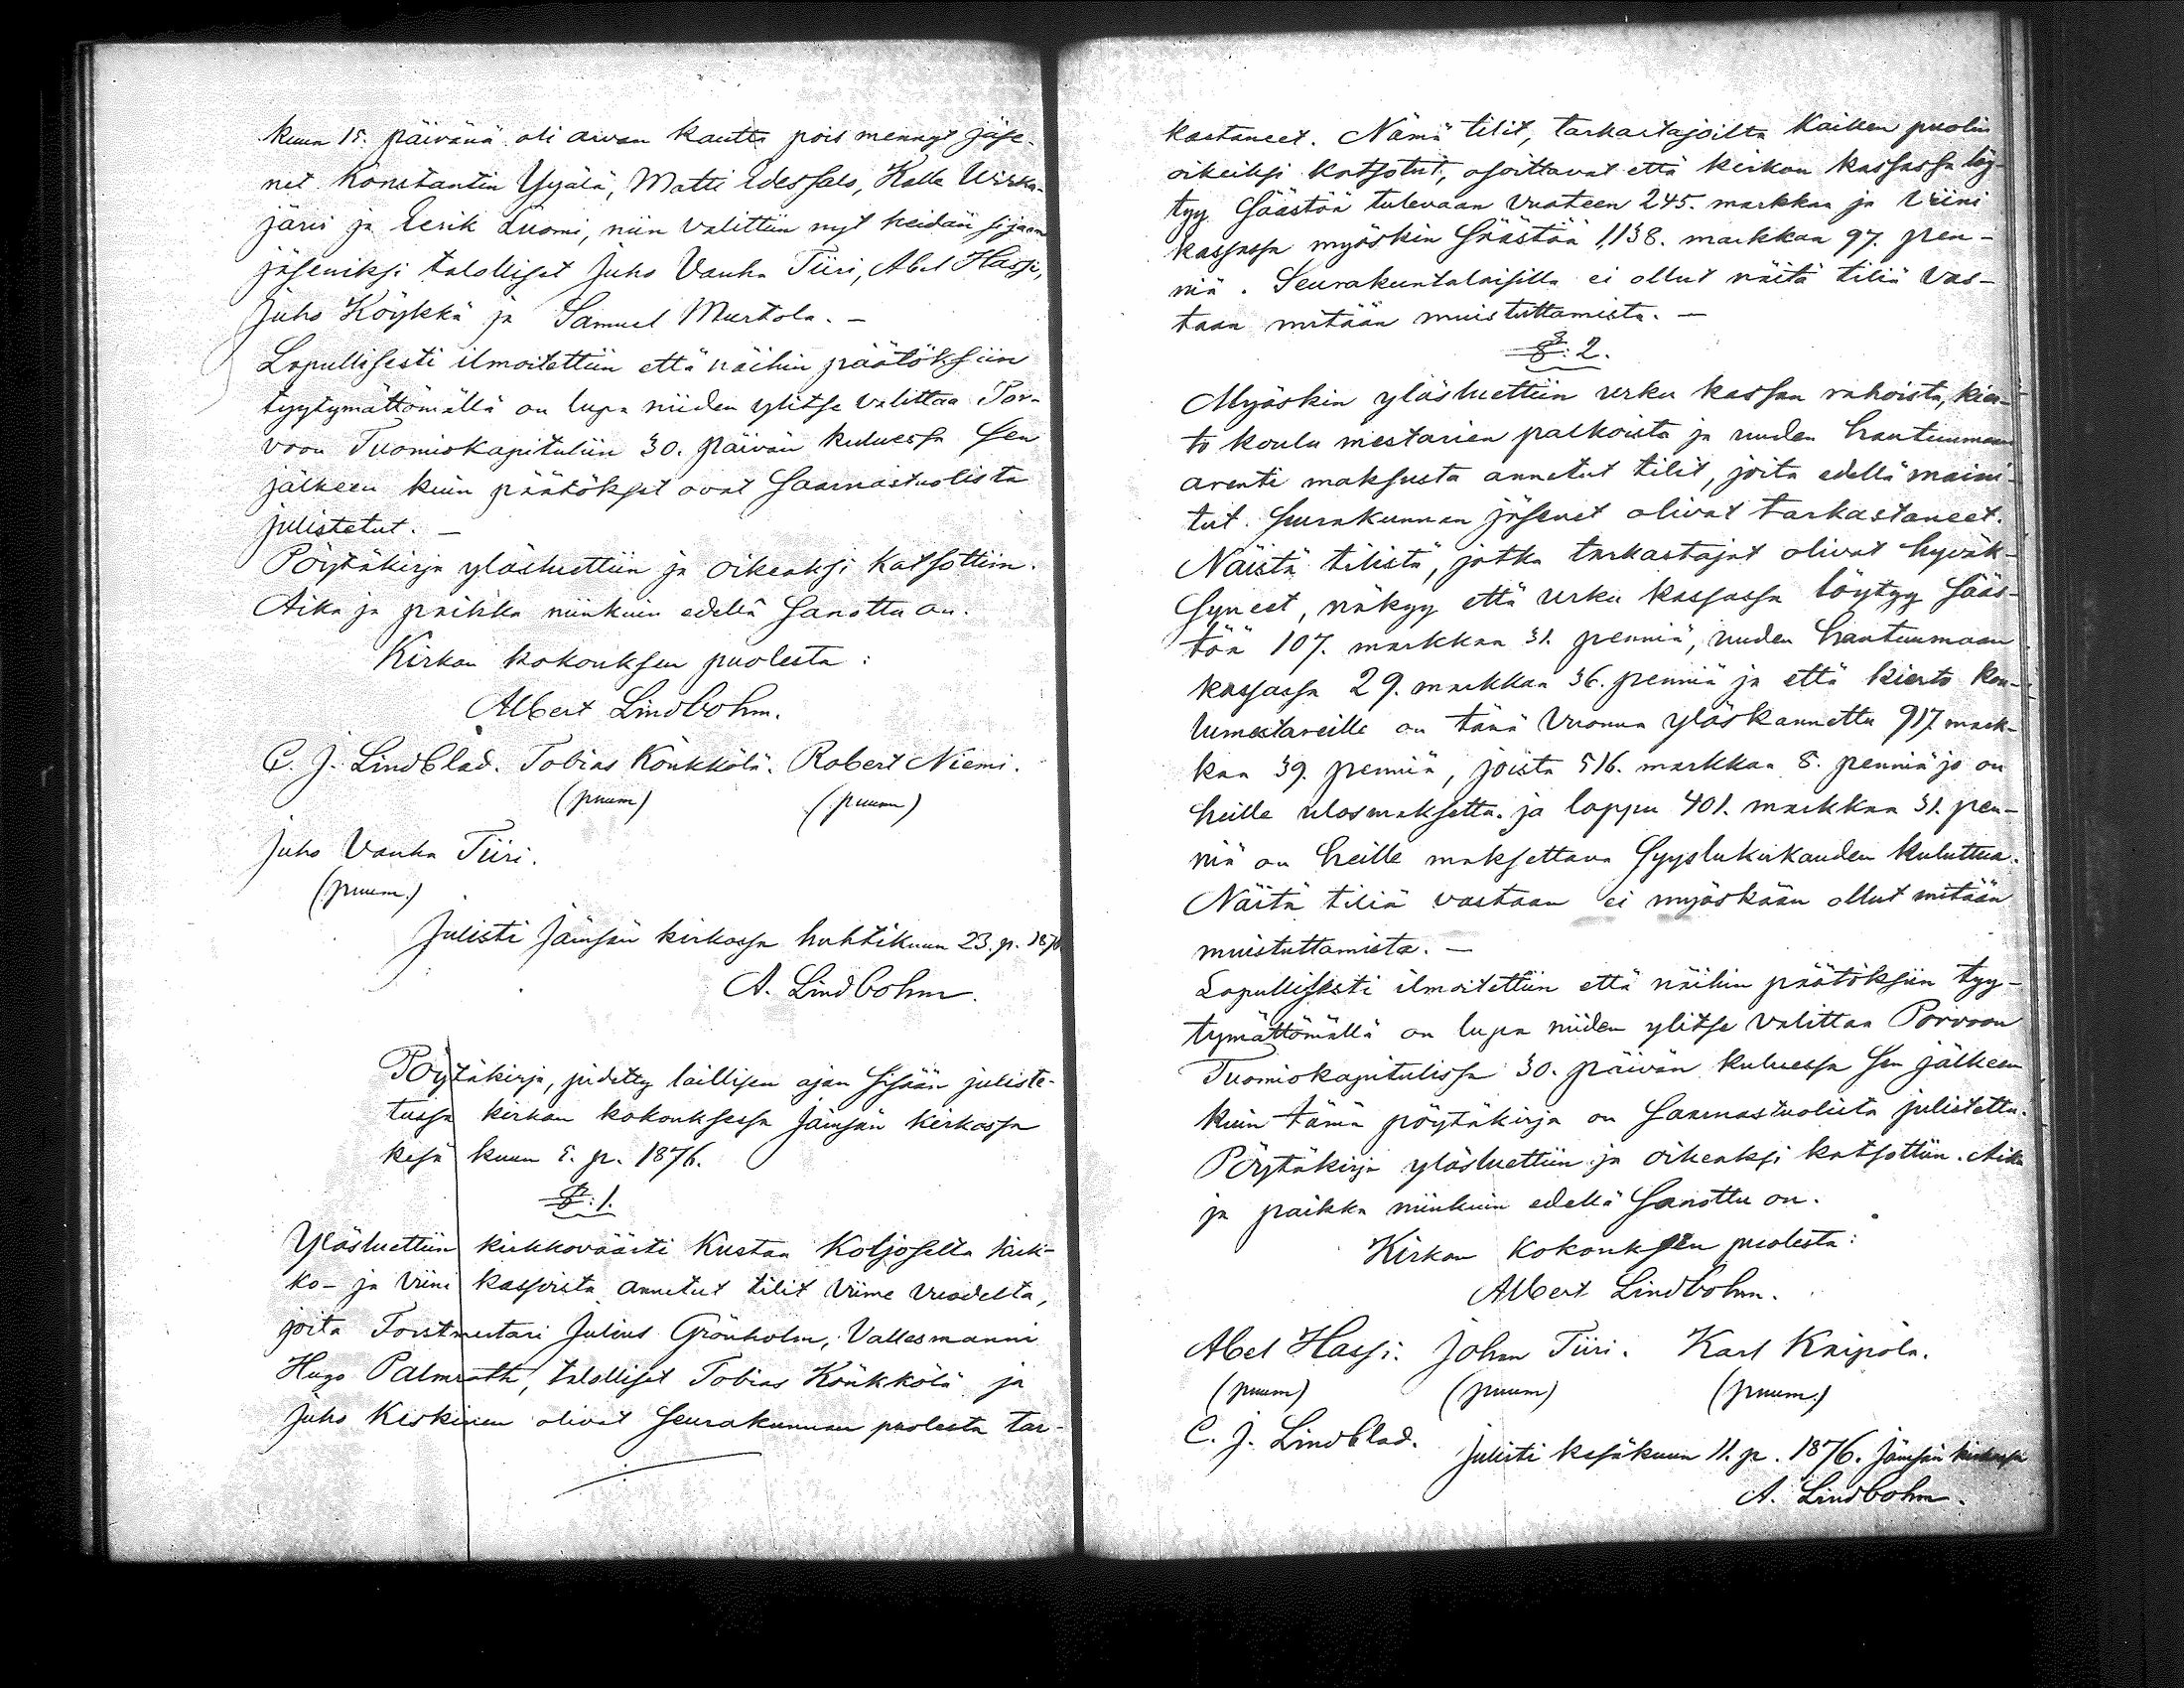 kuun 15. päivänä oli aivan kautta pois mennyt jäse-
net Konstantin Yijälä, Matti Edessalo, Kalle Wirka-
järvi ja Eerik Luomi, niin valittiin nyt heidän sijaan
jäseniksi talolliset Juho Vanha Tiiri, Abel Hassi,
Juho Köykkä ja Samuel Murtola. —
Lopullisesti ilmoitettiin että näihin päätöksiin
tyytymättömällä on lupa niiden ylitse valittaa Por-
voon Tuomiokapituliin 30. päivän kuluessa sen
jälkeen kuin päätökset ovat Saarnastuolista
julistetut. —
Pöytäkirja ylösluettiin ja oikeaksi katsottiin.
Aika ja paikka niinkuin edellä sanottu on.
Kirkon kokouksen puolesta:
Albert Lindbohm.
C. J. Lindblad. Tobias Könkkölä. Robert Niemi.
(puum) (puum)
Juho Vanha Tiiri.
(puum.)
Julisti Jämsän kirkossa huhtikuun 23. p. 1876
A. Lindbohm.
Pöytäkirja, pidetty laillisen ajan sisään juliste-
tussa kirkon kokouksessa Jämsän kirkossa
kesä kuun 5. p. 1876.
§: 1.
Ylösluettiin kirkkoväärti Kustaa Koljoselta kirk-
ko- ja viini kassoista annetut tilit viime vuodelta,
joita Forstmestari Julius Grönholm, Vallesmanni
Hugo Palmroth, talolliset Tobias Könkkölä ja
Juho Keskinen olivat seurakunnan puolesta tar-
kastaneet. Nämä tilit, tarkastajoilta kaiken puolin
oikeiksi katsotut, osoittavat että kirkon kassassa löy-
tyy säästöä tulevaan vuoteen 245. markkaa ja viini
kassassa myöskin säästöä 1,138. markkaa 97. pen-
niä. Seurakuntalaisilla ei ollut näitä tiliä vas-
taan mitään muistuttamista. —
§: 2.
Myöskin ylösluettiin urku kassan rahoista, kier-
to koulu mestarien palkoista ja uuden hautuumaan
arenti maksusta annetut tilit, joita edellä maini-
tut seurakunnan jäsenet olivat tarkastaneet.
Näistä tilistä, jotka tarkastajat olivat hyväk-
syneet, näkyy että urku kassassa löytyy sääs-
töä 107. markkaa 31. penniä, uuden hautuumaan
kassassa 29. markkaa 36. penniä ja että kierto kou-
lumestareille on tänä vuonna ylöskannettu 917. mark-
kaa 39. penniä, joista 516. markkaa 8. penniä jo on
heille ulosmaksettu ja loppu 401. markkaa 31. pen-
niä on heille maksettava syyslukukauden kuluttua.
Näitä tiliä vastaan ei myöskään ollut mitään
muistuttamista. —
Lopullisesti ilmoitettiin että näihin päätöksiin tyy-
tymättömällä on lupa niiden ylitse valittaa Porvoon
Tuomiokapitulissa 30. päivän kuluessa sen jälkeen
kuin tämä pöytäkirja on saarnastuolista julistettu.
Pöytäkirja ylösluettiin ja oikeaksi katsottiin. Aika
ja paikka niinkuin edellä sanottu on.
Kirkon kokouksen puolesta:
Albert Lindbohm.
Abel Hassi. Johan Tiiri. Karl Kaipola.
(puum) (puum) (puum.)
C. J. Lindblad.
Julisti kesäkuun 11. p. 1876. Jämsän kirkossa
A. Lindbohm.